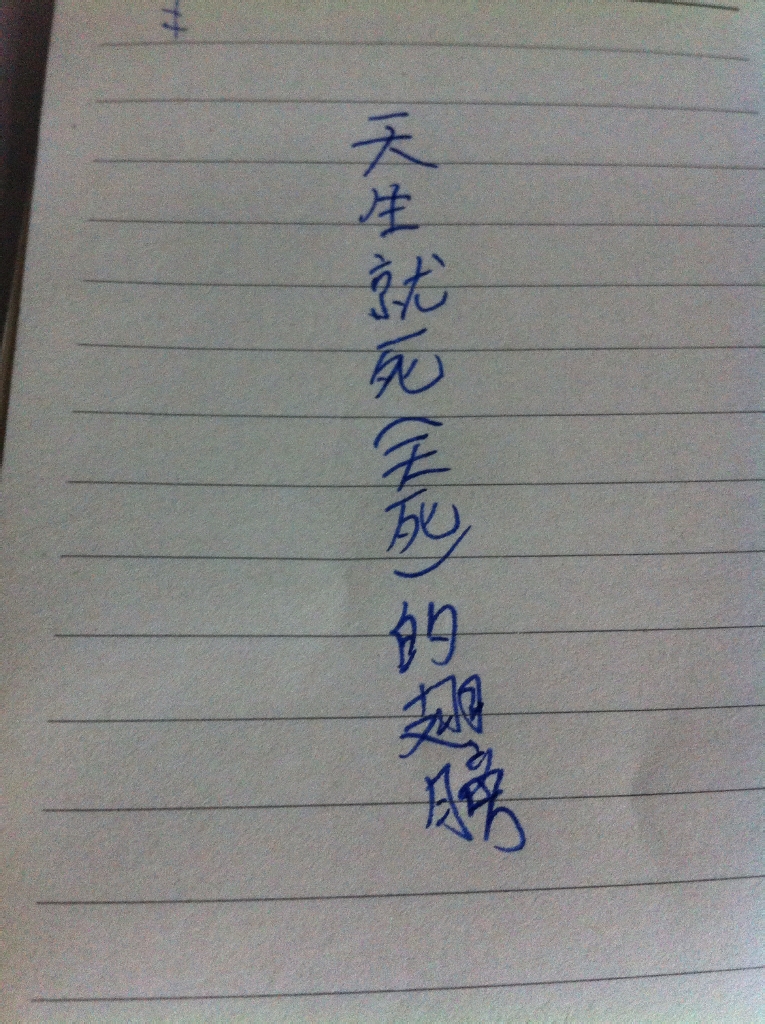 天生就死(夭死)的翅膀